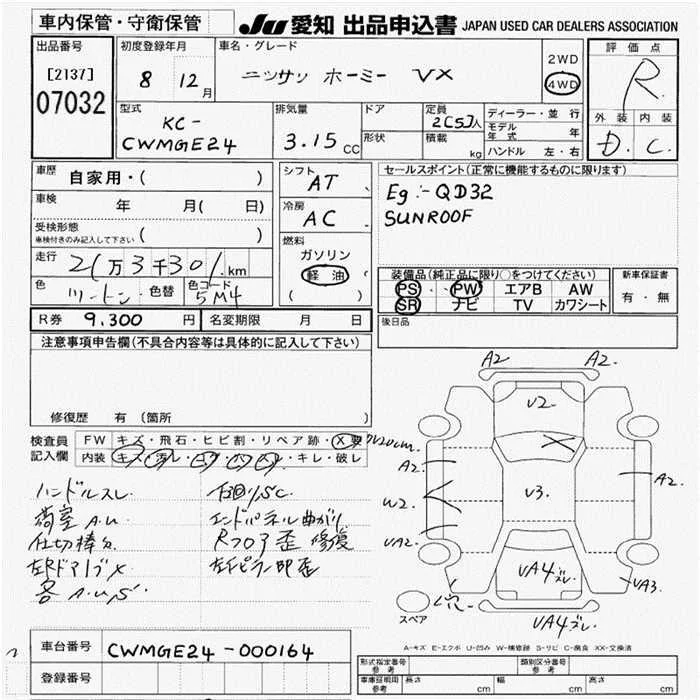 車内保管・守衛保管
JU 愛知 出品申込書 JAPAN USED CAR DEALERS ASSOCIATION
出品番号
[2137]
07032
初度登録年月
8 12月
車名・グレード
ニッサン ホーミー VX
2WD
4WD
評価点
R
外装 内装
D. C.
型式
KC-
CWMGE24
排気量
3.15 CC
ドア
形状
定員
2(5)人
積載
kg
ディーラー・並行
モデル年式 年
ハンドル 左・右
車歴
自家用・( )
車検
年 月( 日)
受検形態
車検付きのみ記入して下さい ( )
走行
21万3千301km
色
ツートン 色替
色コード
5M4
シフト
AT
冷房
AC
燃料
ガソリン
軽油
( )
セールスポイント(正常に機能するものに限ります)
Eg :- QD32
SUNROOF
装備品(純正品に限り○をつけてください)
PS ・ PW エアB AW
SR ナビ TV カワシート
新車保証書
有・無
R券 9,300 円
名変期限 月 日
後日品
注意事項申告欄(不具合内容等は具体的に記入して下さい)
修復歴 有(箇所 )
検査員記入欄
FW キズ・飛石・ヒビ割・リペア跡・X要
内装 キズ・汚レ・コゲ・穴・キレ・破レ
20cm.
ハンドルスレ
荷室 A.U
エンドパネル曲がり
Rフロア歪 修復
左ピラー
A2 A2.
V2.
X
A2.
W2.
V3.
A2.
UA2.
UA4ズレ
UA3.
UA4ズレ.
スペア
A-キズ E-エクボ U-凹み W-補修跡 S-サビ C-腐食 XX-交換済
車台番号
CWMGE24-000164
登録番号
形式指定番号
参考
類別区分番号
参考
車庫証明用
参考
長さ cm 幅 cm 高さ cm